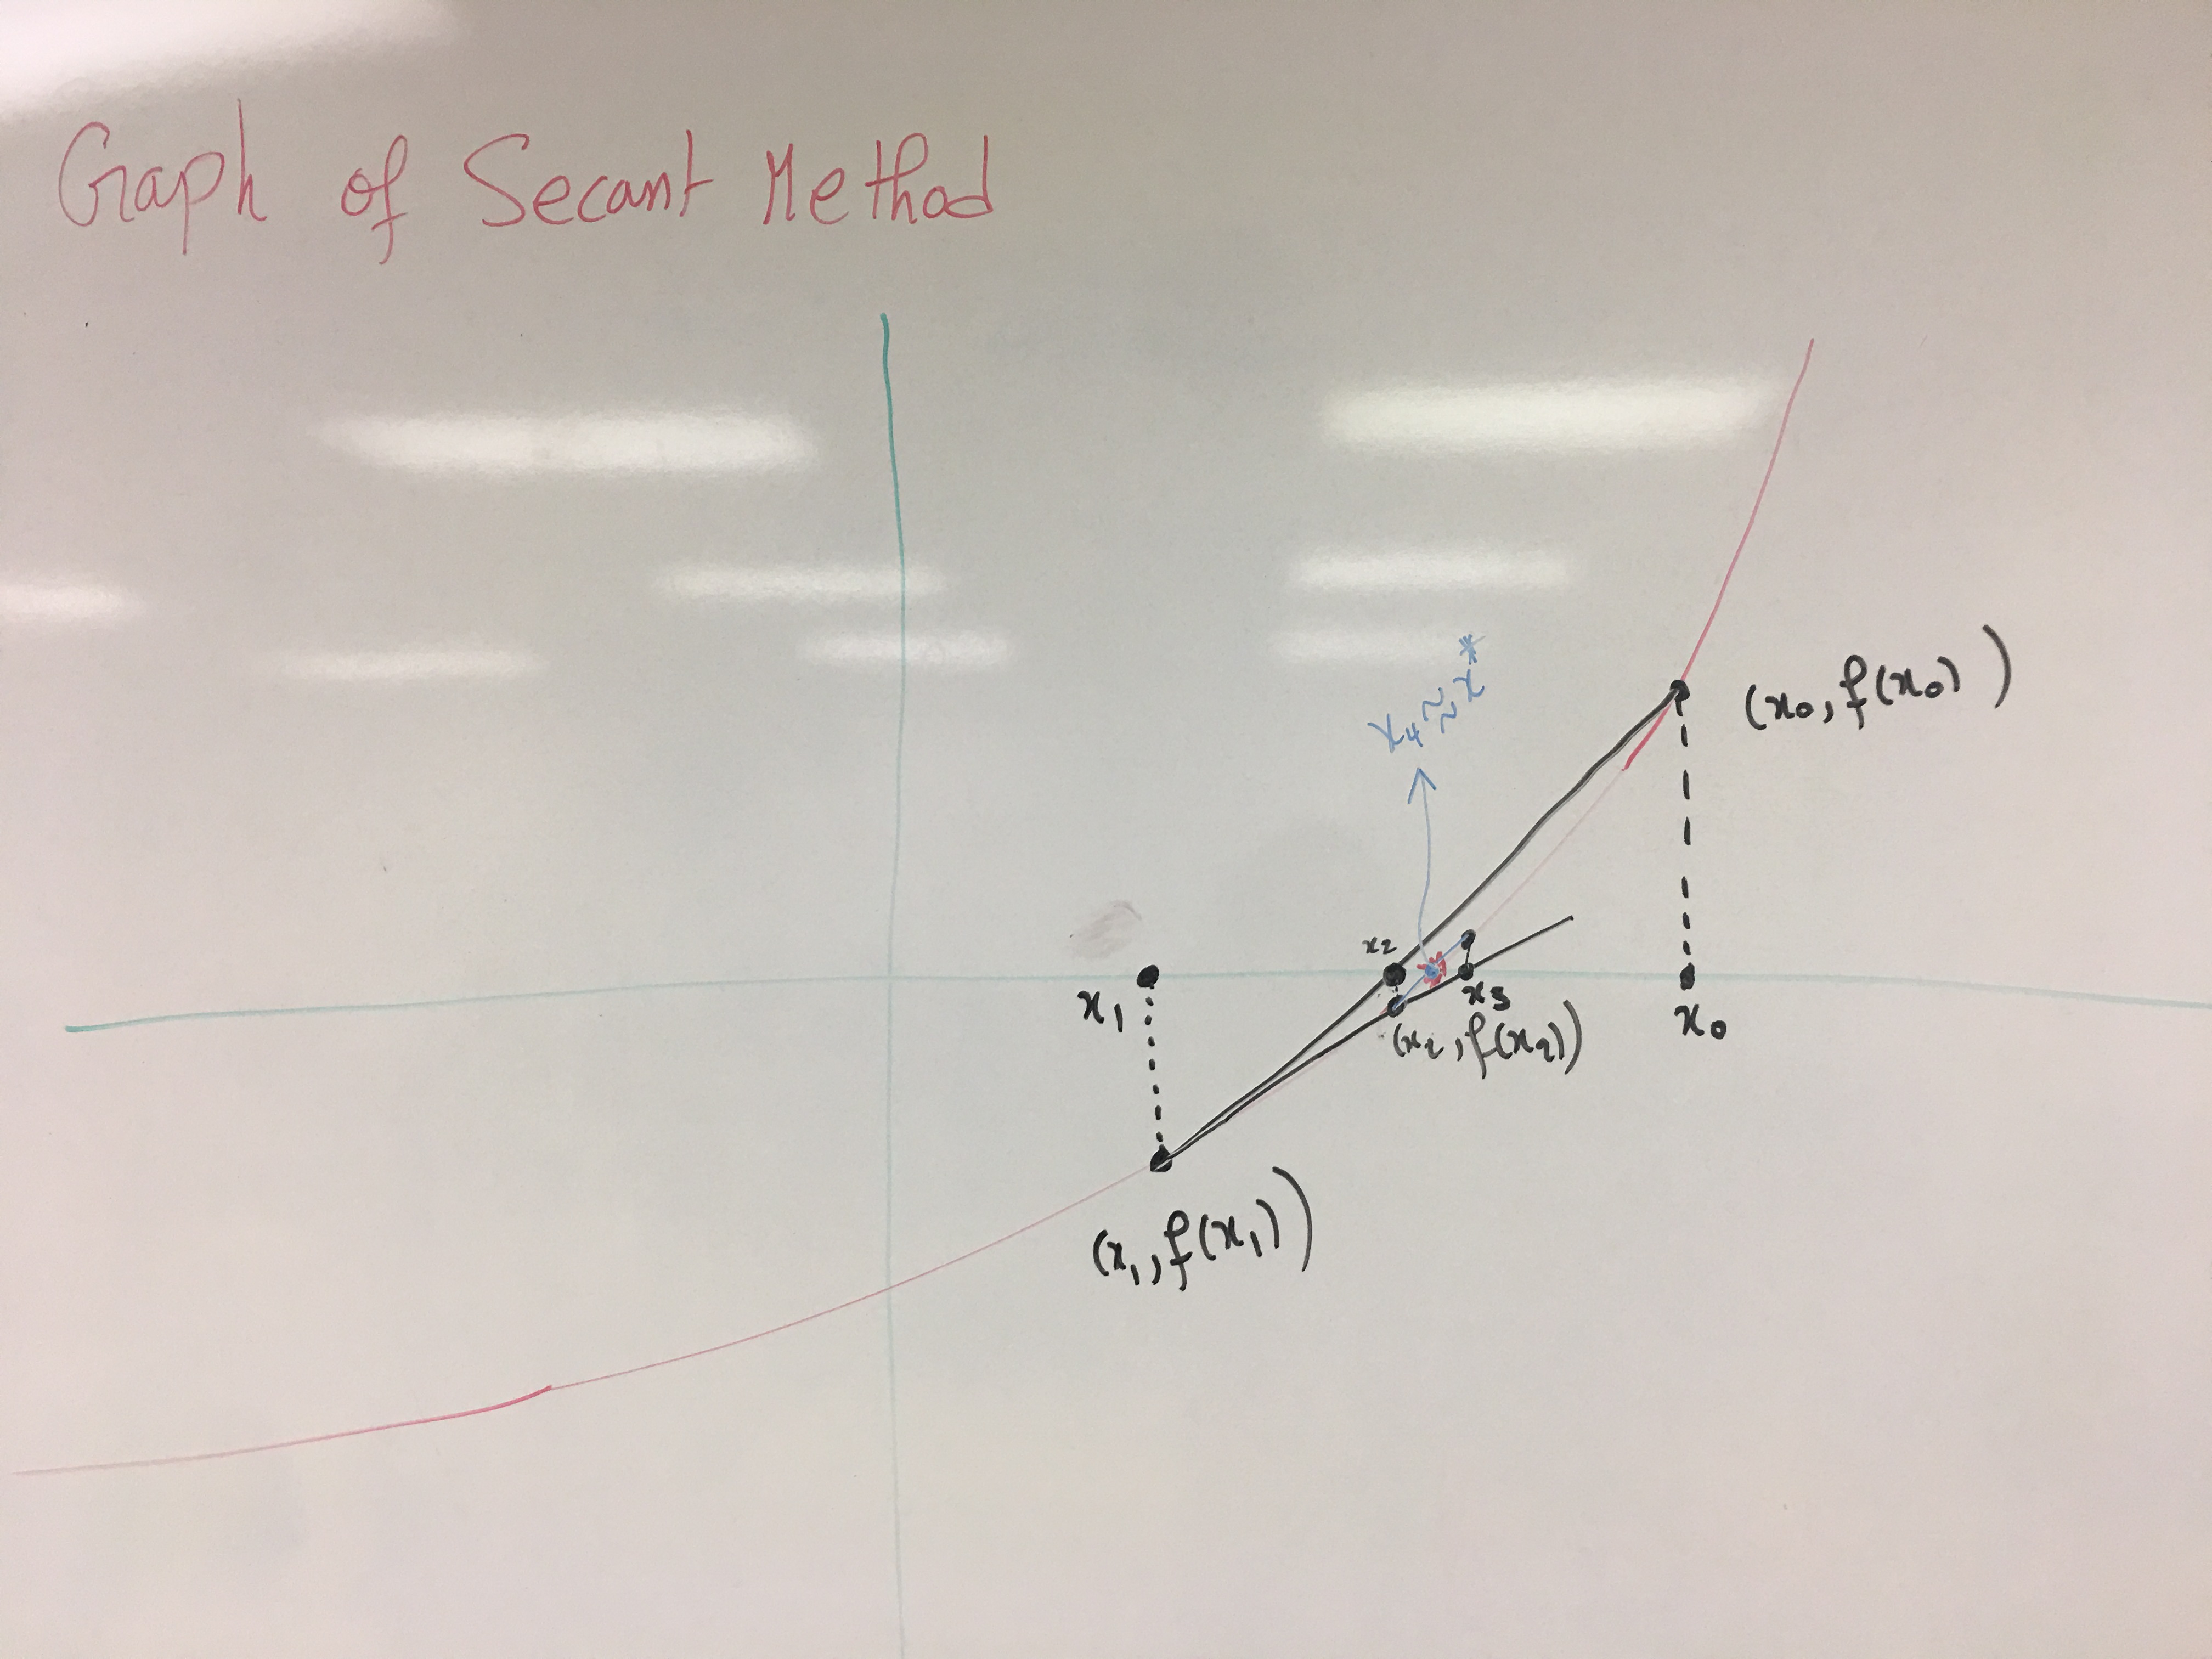 Graph of Secant Method
x₄ ≈ x*
(x₀, f(x₀))
x₂
x₁
x₃
x₀
(x₂, f(x₂))
(x₁, f(x₁))